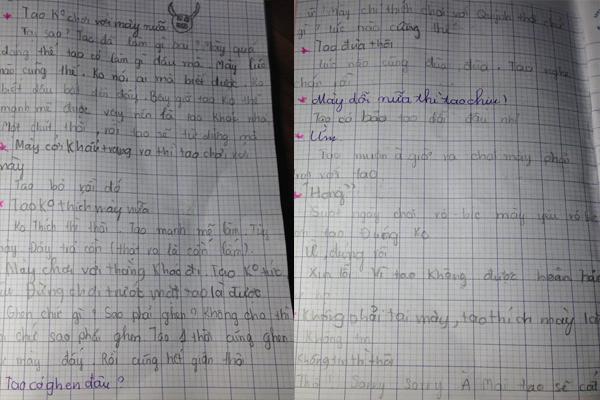 Tao K° chơi với mày nữa
Tại sao? Tao đã làm gì sai? Mày quá
đáng thế tao có làm gì đâu mà Mày lúc
nào cũng thế. Ko nói ai mà biết được. Ko
biết đâu bắt đền đấy. Bây giờ tao Ko thể
mạnh mẽ được vậy nên là tao khóc nha
Một chút thôi, rồi tao sẽ tự đứng mà
Mày cởi Khẩu trang ra thì tao chơi với
này
Tao bỏ rồi đó
Tao K° thích mày nữa
Ko Thích thì thôi. Tao mạnh mẽ lắm. Tùy
mày. Đấy trả cần (thật ra là cần lắm).
Mày chơi với thằng Khác đi. Tao K° tức
đâu. Đừng chơi trước mặt tao là được
Ghen chứ gì? Sao phải ghen? Không cho thì
chứ sao phải ghen Tao 1 thời cũng ghen
mày đấy. Rồi cũng hết giận thôi
Tao có ghen đâu?
Mày chỉ thích chơi với Quỳnh thôi chứ
gì? lúc nào cũng thế
Tao đùa thôi
lúc nào cũng đùa đùa. Tao nghe
chán rồi
Mày dỗi nữa thì tao chịu!
Tao có bảo tao dỗi đâu nhỉ
Ừm
Tao muốn giờ ra chơi mày phải
với tao
"Hong"
Suốt ngày chơi
tao Đúng Ko
Ừ, đúng rồi
Xin lỗi. Vì tao không được hoàn hảo
Không phải tại mày, tao thích mày là
Không tin
Không tin thì thôi
Thôi Sorry Sorry À Mai tao sẽ cắt